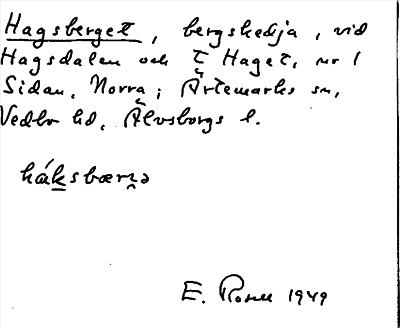 Hagsberget, bergskedja, vid
Hagsdalen och t Haget, nr 1
Sidan, Norra; Ärtemarks sn,
Vedbo hd, Älvsborgs l.
háksbærɳə
E. Rosell 1949